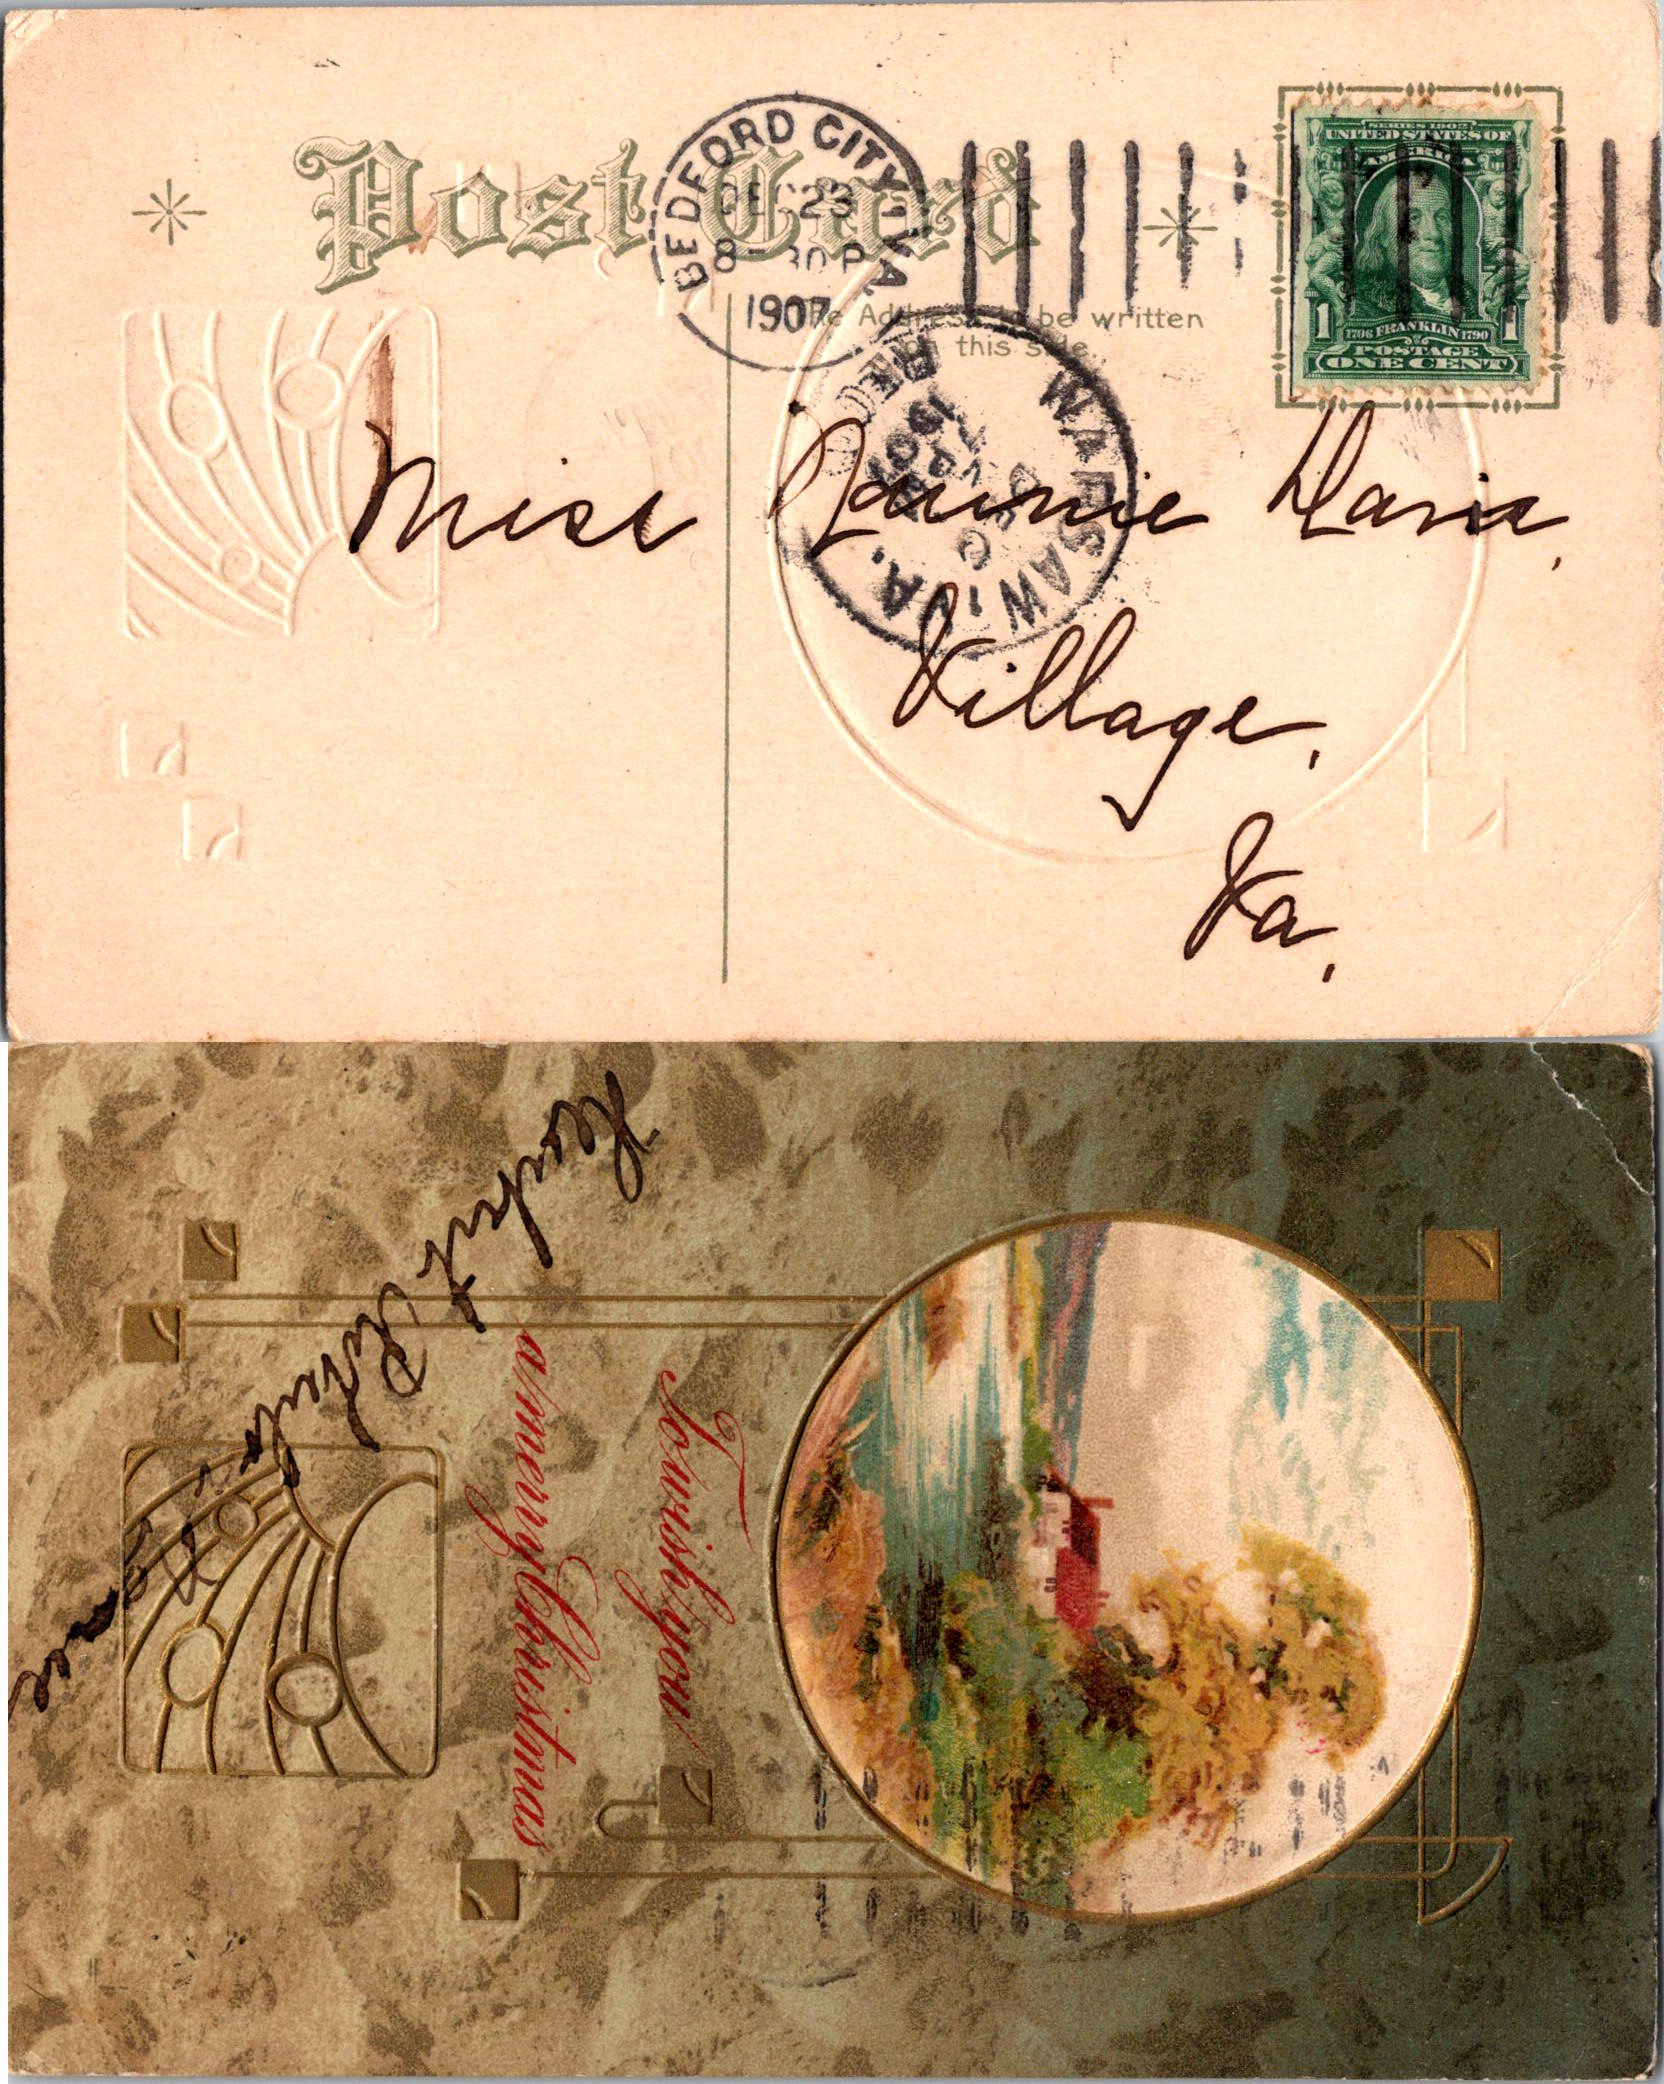 Post Card
BEDFORD CITY, VA.
DEC 23
8-30 P
1907
The Address to be written
on this side.
SERIES 1902
UNITED STATES OF
AMERICA
1 1706 FRANKLIN 1790 1
POSTAGE
ONE CENT
WARSAW, VA.
REC'D
1907
Miss Nannie Davis,
Village,
Va.
To wish you
a merry Christmas
Herbert